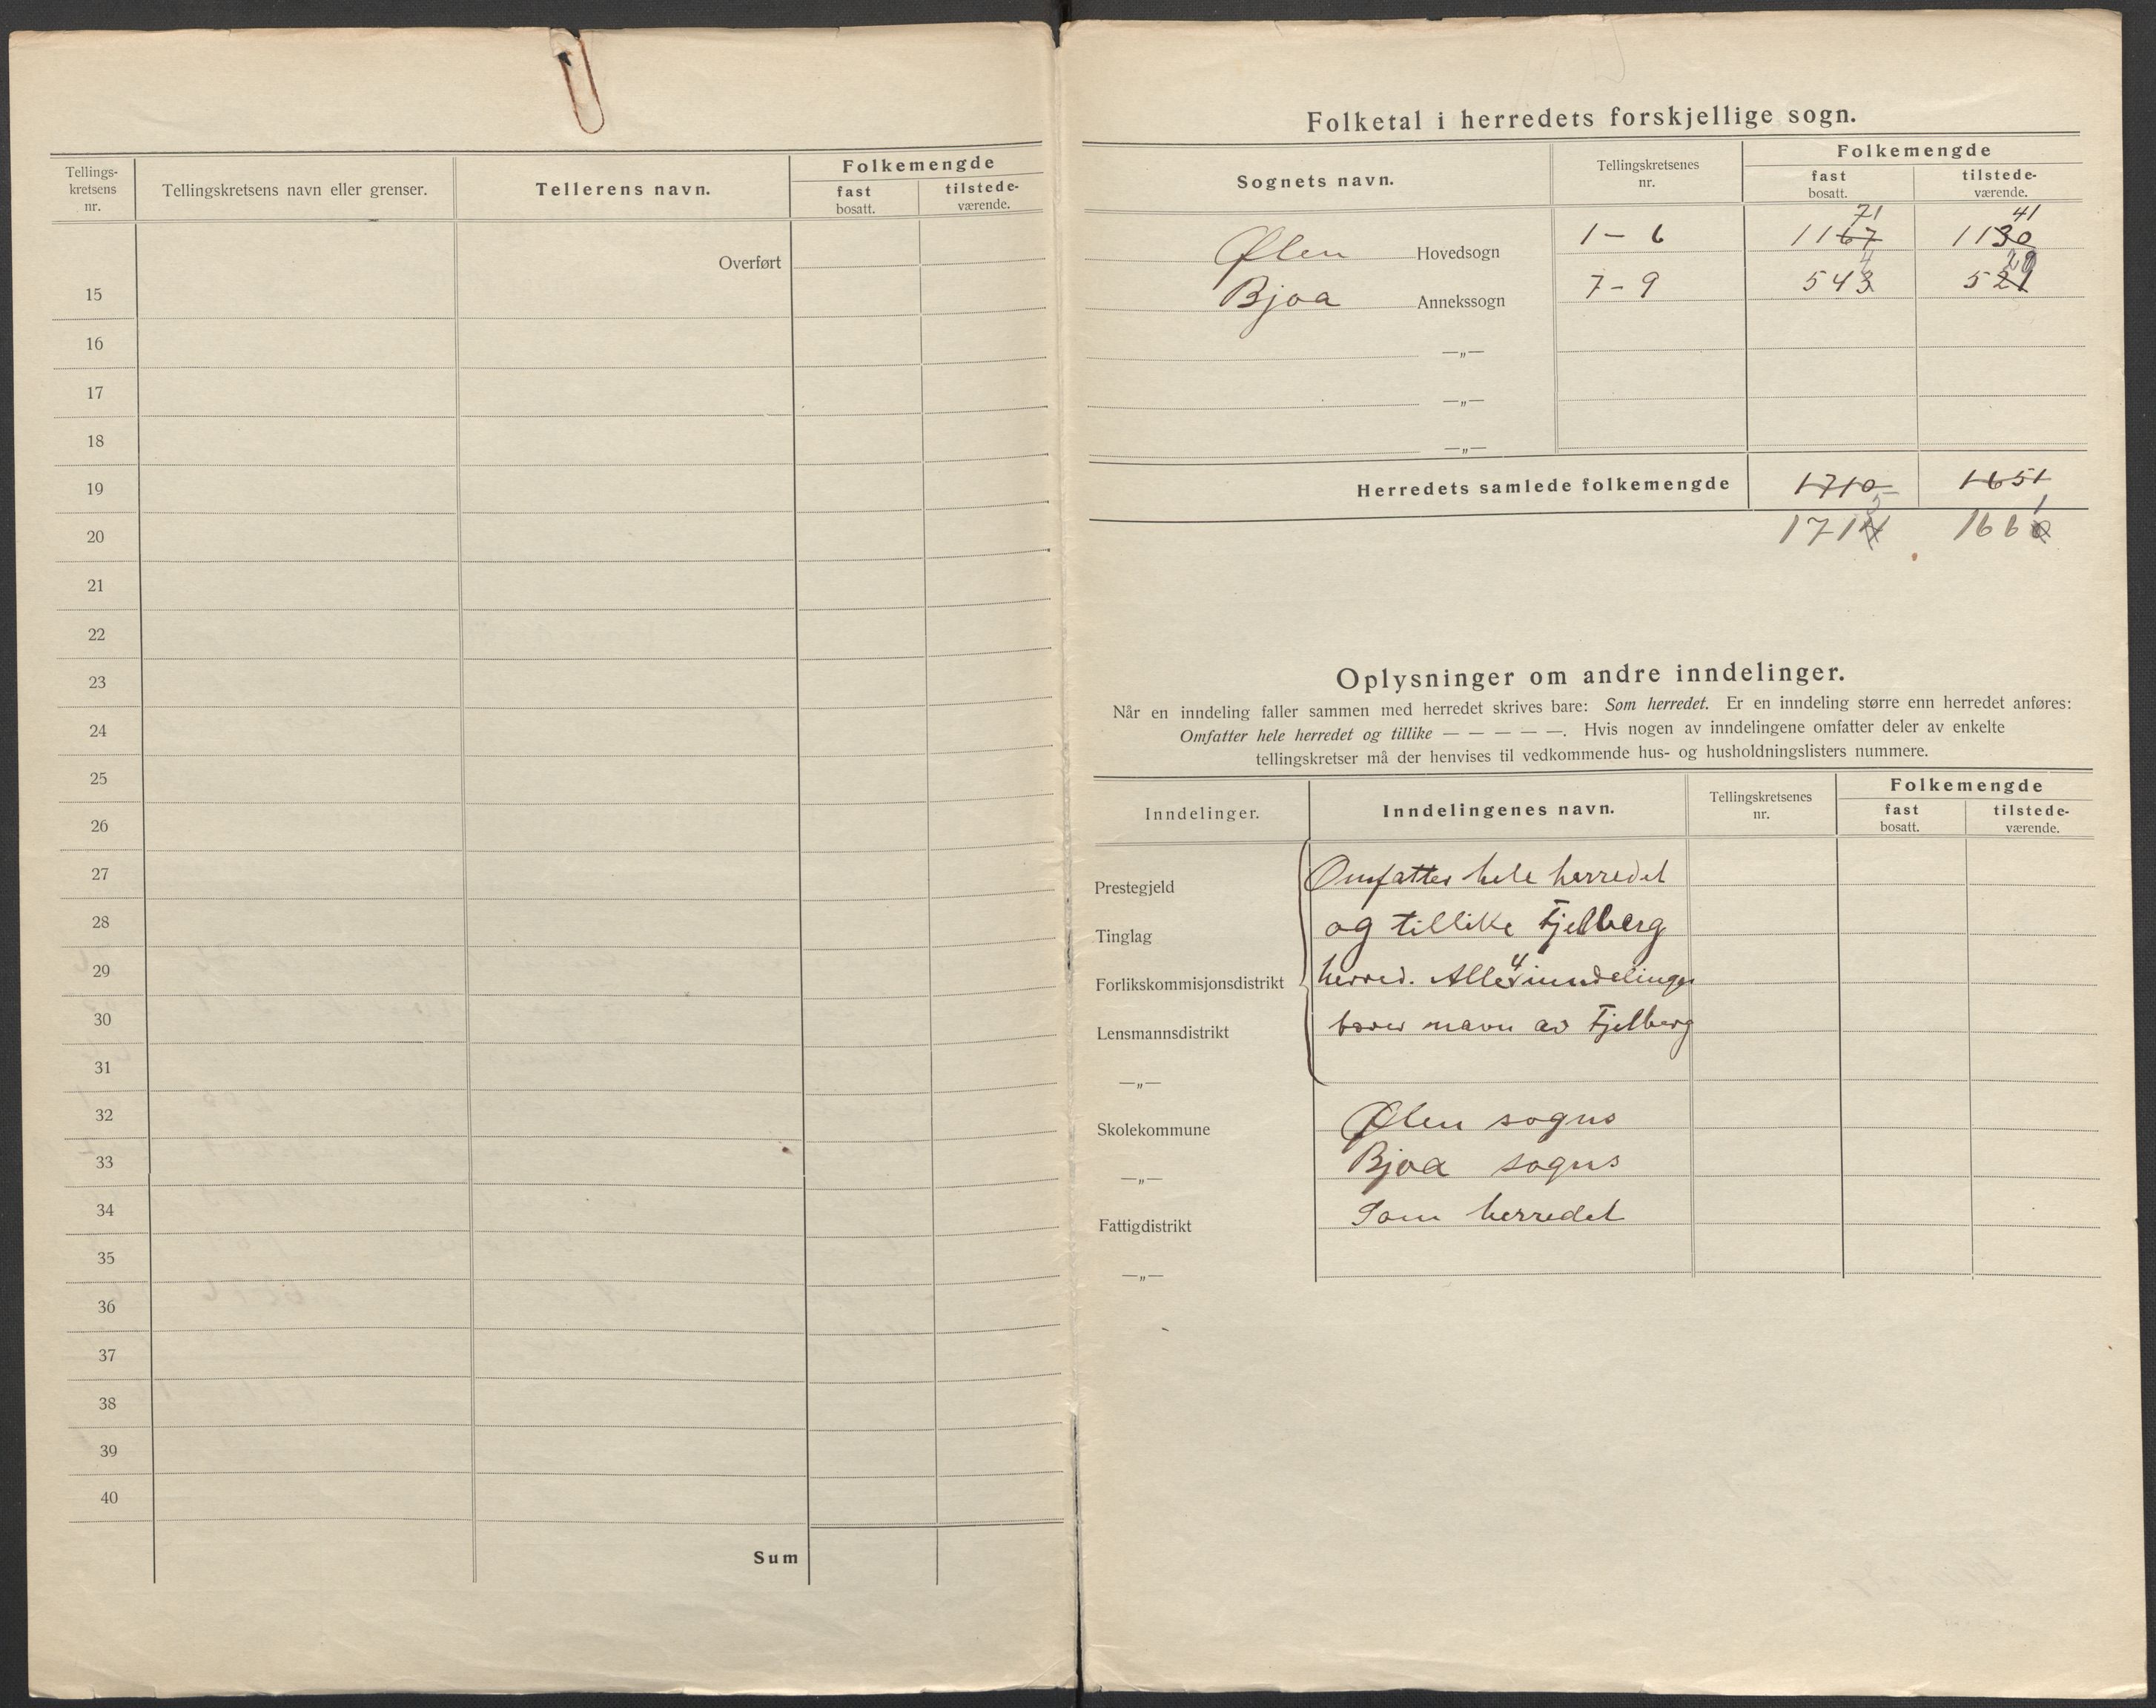 Tellings-
kretsens
nr.
Tellingskretsens navn eller grenser.
Tellerens navn.
Folkemengde
fast
bosatt.
tilstede-
værende.
Overført
15
16
17
18
19
20
21
22
23
24
25
26
27
28
29
30
31
32
33
34
35
36
37
38
39
40
Sum
Folketal i herredets forskjellige sogn.
Sognets navn.
Tellingskretsenes
nr.
Folkemengde
fast
bosatt.
tilstede-
værende.
71 41
Ølen Hovedsogn 1 - 6 1167 1130
4 20
Bjoa Annekssogn 7 - 9 543 521
—„—
—„—
—„—
Herredets samlede folkemengde 1710 1651
5 1
1714 1660
Oplysninger om andre inndelinger.
Når en inndeling faller sammen med herredet skrives bare: Som herredet. Er en inndeling større enn herredet anføres:
Omfatter hele herredet og tillike — — — — —. Hvis nogen av inndelingene omfatter deler av enkelte
tellingskretser må der henvises til vedkommende hus- og husholdningslisters nummere.
Inndelinger.
Inndelingenes navn.
Tellingskretsenes
nr.
Folkemengde
fast
bosatt.
tilstede-
værende.
Prestegjeld Omfatter hele herredet
Tinglag og tillike Fjelberg
Forlikskommisjonsdistrikt herred. Alle 4 inndelinger
Lensmannsdistrikt bærer navn av Fjelberg
—„—
Skolekommune Ølen sogns
—„— Bjoa sogns
Fattigdistrikt Som herredet
—„—